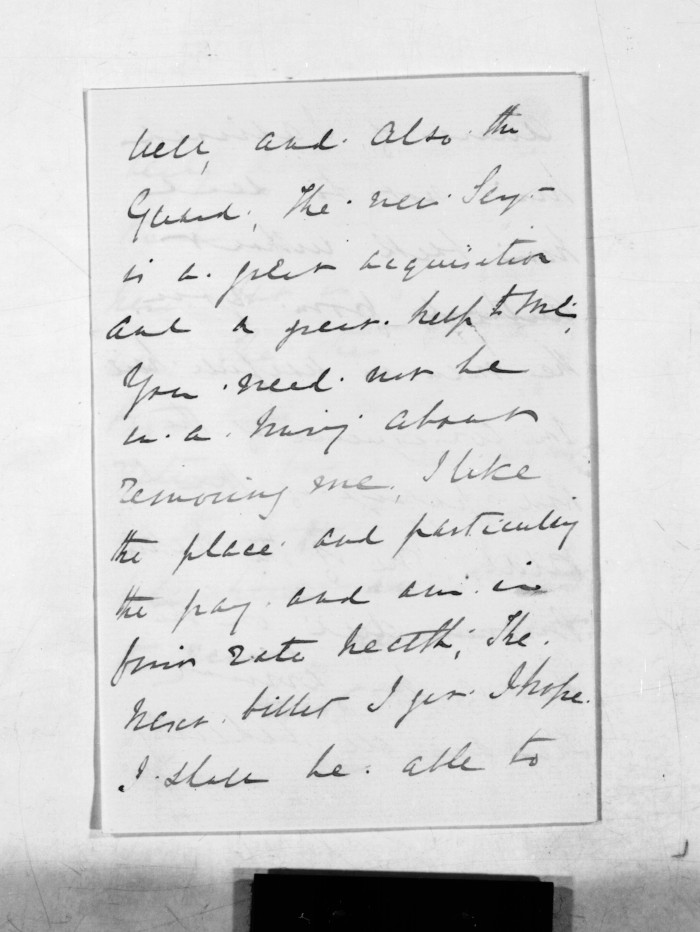 well, and also the
Guard. The new Sergt
is a great acquisition
and a great help to me,
You need not be
in a hurry about
removing me, I like
the place and particularly
the pay and am in
first rate health; The
next billet I get I hope
I shall be able to